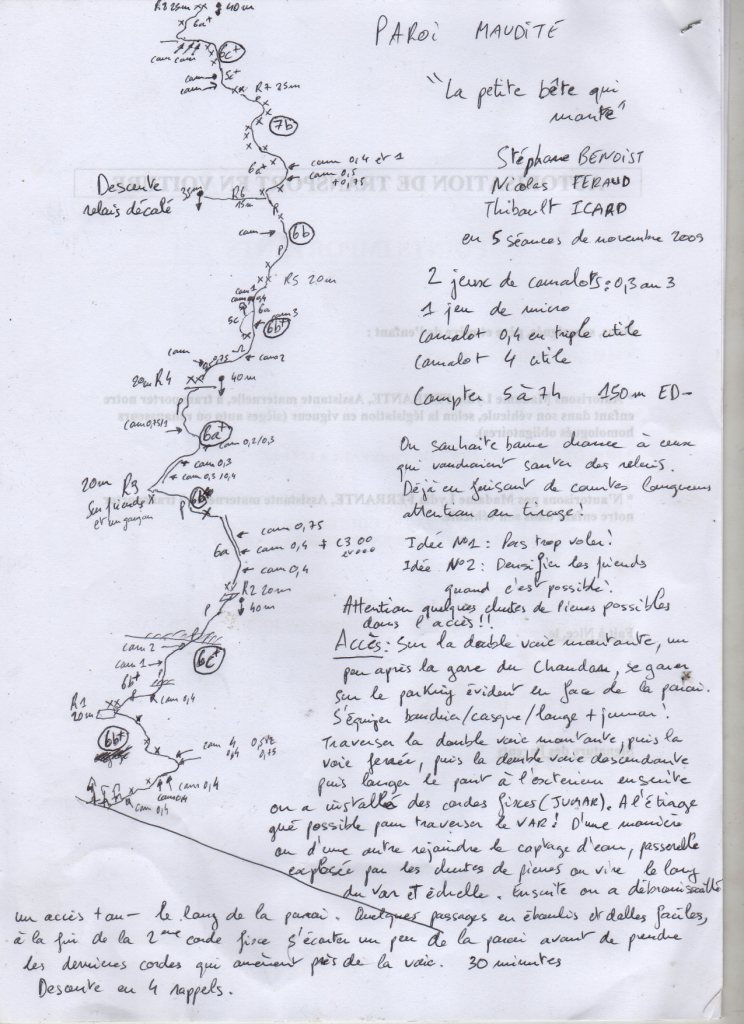 PAROI MAUDITE
"La petite bête qui
monte"
Stéphane BENOIST
Nicolas FERAUD
Thibault ICARD
en 5 séances de novembre 2009
2 jeux de camalots : 0,3 au 3
1 jeu de micro
camalot 0,4 en triple utile
camalot 4 utile
Compter 5 à 7h 150m ED-
On souhaite bonne chance à ceux
qui voudraient sauter des relais.
Déjà en faisant de courtes longueurs
attention au tirage!
Idée N°1 : Pas trop voler!
Idée N°2 : Densifier les friends
quand c'est possible!
Attention quelques chutes de Pierres possibles
dans l'accès!!
Accès : Sur la double voie montante, un
peu après la gare du Chaudan, se garer
sur le parking évident en face de la paroi.
S'équiper baudrier/casque/longe + jumar!
Traverser la double voie montante, puis la
voie ferrée, puis la double voie descendante
puis longer le pont à l'extérieur ensuite
on a installé des cordes fixes (JUMAR). A l'Etiage
gué possible pour traverser le VAR! D'une manière
ou d'une autre rejoindre le captage d'eau, passerelle
explosée par les chutes de pierres on vire le long
du var et échelle. Ensuite on a débroussaillé
un accès + ou - le long de la paroi. Quelques passages en éboulis et dalles faciles,
à la fin de la 2ème corde fixe s'écarter un peu de la paroi avant de prendre
les dernières cordes qui amènent près de la voie. 30 minutes
Descente en 4 rappels.
R8 25m 40m
cam cam
6c+
cam 5c+
cam
R7 25m
7b
6a+
cam 0,4 et 1
cam 0,5
+0,75
Descente
relais décalé
35m
R6
15m
cam
6b
P
R5 20m
cam 1
6a
5c
cam 3
6b+
cam 0,75
cam 2
20m R4
40m
cam 0,75/1
6a+
cam 0,2/0,3
cam 0,3
cam 0,3 0,4
20m R3
Sur friends
et un goujon
P
6b+
6a
cam 0,75
cam 0,4 + C3 00
et 000
cam 0,4
R2 20m
P
40m
cam 2
cam 1
6c+
6b+
cam 0,4
R1
20m
6b+
cam 4 0,5 x2
0,4 0,75
cam 0,4
cam 0,4